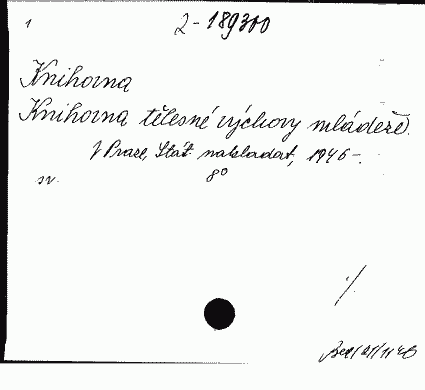 1 2-189300
Knihovna
Knihovna tělesné výchovy mládeže.
V Praze, Stát. nakladat, 1946-.
sv. 8°